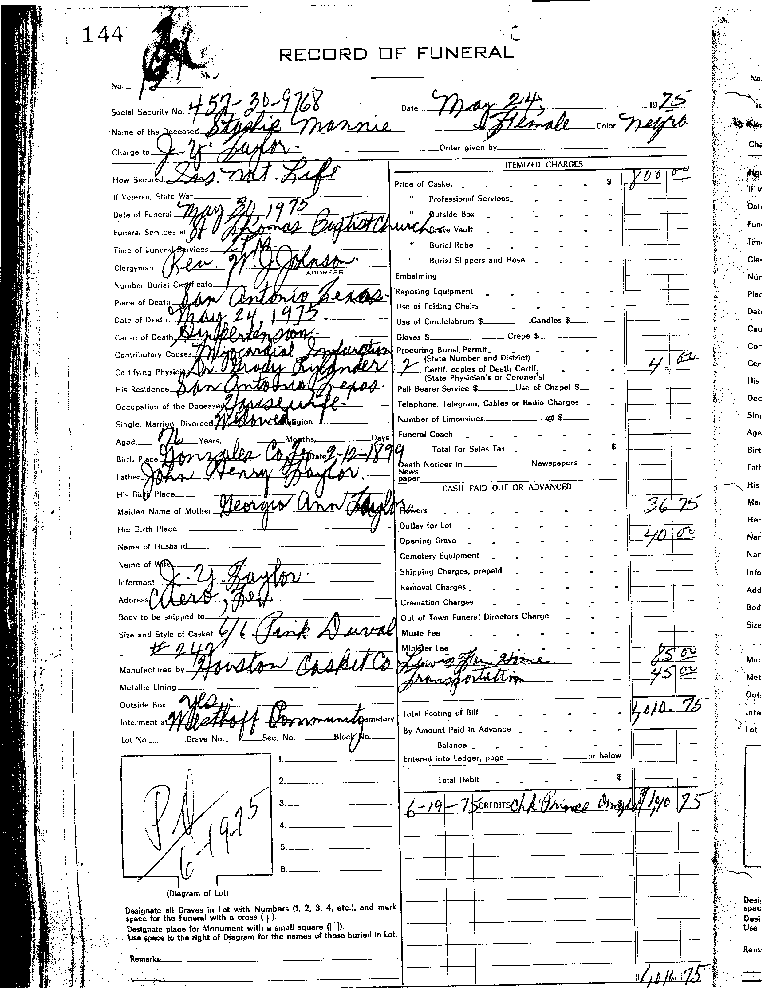 144
RECORD OF FUNERAL
No.
Social Security No. 457-30-9768 Date May 24, 1975
Name of the Deceased Mannie Female Color Negro
Charge to J. Y. Taylor. Order given by
How Secured Ins. Nat. Life
If Veteran, State War
Date of Funeral May 31, 1975
Funeral Services at St Thomas Baptist Church
Time of Funeral Services
Clergyman Rev. W. J. Johnson ADDRESS
Number Burial Certificate
Place of Death San Antonio Texas.
Date of Death May 24 1975
Cause of Death Hypertension
Contributory Causes Myocardial Infarction
Certifying Physician Dr. Grady
His Residence San Antonio Texas.
Occupation of the Deceased Housewife.
Single, Married, Divorced Widowed Religion
Aged 76 Years, Months, Days
Birth Place Gonzales Co. Date 2-12-1899
Father John Henry Taylor.
His Birth Place
Maiden Name of Mother Georgia Ann Taylor
Her Birth Place
Name of Husband
Name of Wife
Informant J. Y. Taylor.
Address Cuero, Tex
Body to be shipped to
Size and Style of Casket 6/6 Pink Duval
# 242
Manufactured by Houston Casket Co
Metallic Lining
Outside Box yes.
Interment at Westhoff Community Cemetery
Lot No. Grave No. Sec. No. Block No.
1.
2.
3.
4.
5.
6.
Pd
6-19-75
(Diagram of Lot)
Designate all Graves in Lot with Numbers (1, 2, 3, 4, etc.), and mark
space for the Funeral with a cross (†).
Designate place for Monument with a small square (□).
Use space to the right of Diagram for the names of those buried in Lot.
Remarks
ITEMIZED CHARGES
Price of Casket $ 800 00
" Professional Services
" Outside Box
" Grave Vault
" Burial Robe
" Burial Slippers and Hose
Embalming
Reporting Equipment
Use of Folding Chairs
Use of Candelabrum $ Candles $
Gloves $ Crepe $
Procuring Burial Permit
(State Number and District)
2 Certif. copies of Death Certif. 4 00
(State Physician's or Coroner's)
Pall Bearer Service $ Use of Chapel $
Telephone, Telegram, Cables or Radio Charges
Number of Limousines @ $
Funeral Coach
Total for Sales Tax $
Death Notices in Newspapers
News
paper
CASH PAID OUT OR ADVANCED
Flowers 36 75
Outlay for Lot
Opening Grave 40 00
Cemetery Equipment
Shipping Charges, prepaid
Removal Charges
Cremation Charges
Out of Town Funeral Directors Charge
Music Fee
Minister Fee
Lewis Fun Home 85 00
Transportation 45 00
Total Footing of Bill 1,010.75
By Amount Paid in Advance
Balance
Entered into Ledger, page or below
Total Debit $
6-19-75 CREDITS Chk Prince 75